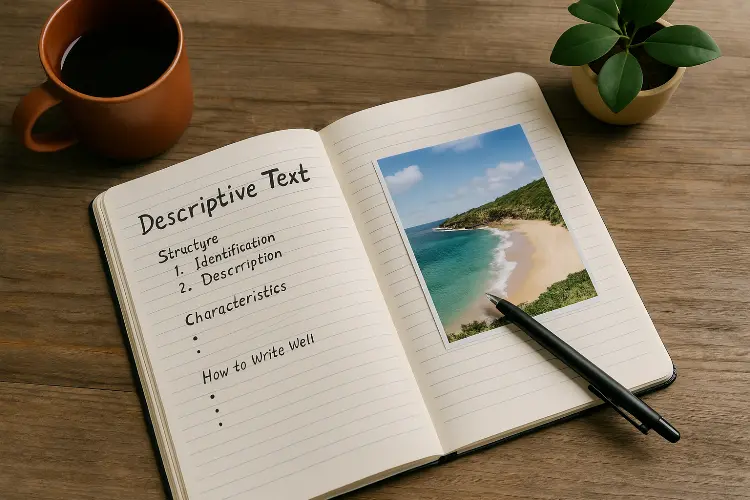 Descriptive Text
Structure
1. Identification
2. Description
Characteristics
•
•
How to Write Well
•
•
•